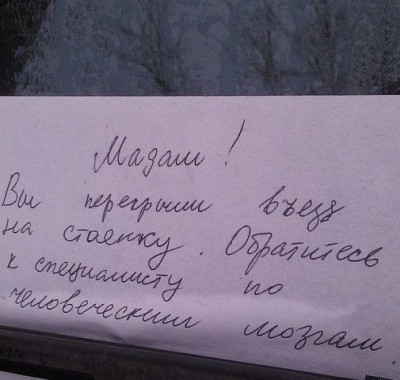 Мадам!
Вы перегрыли въезд
на стоянку. Обратитесь
к специалисту по
человеческим мозгам.